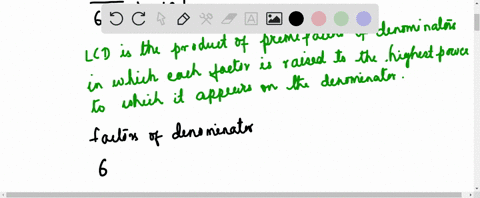 6
LCD is the product of prime factors of denominators
in which each factor is raised to the highest power
to which it appears on the denominator.
factors of denominator
6